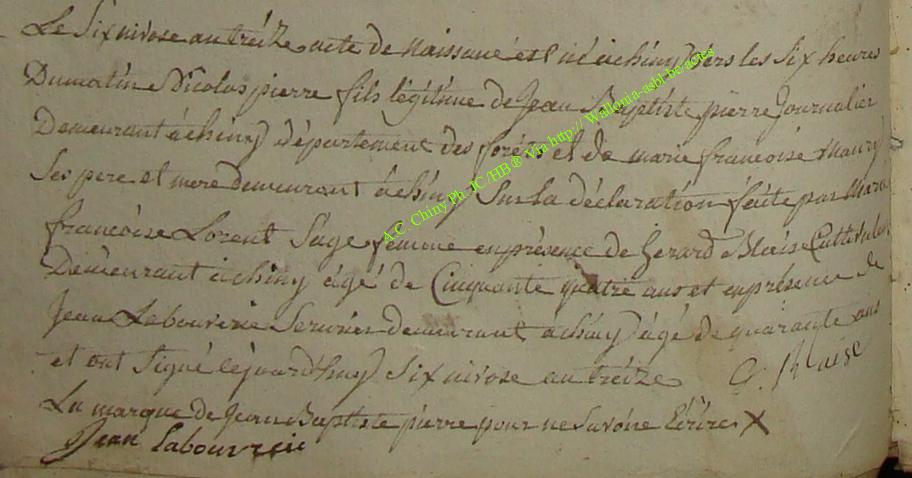 Le Six nivose an treize acte de Naissance est né a chiny vers les Six heures
Dumatin Nicolas pierre fils légitime de Jean Baptiste pierre Journalier
Demeurant à chiny département des forêts et de marie françoise Maury
Ses pere et mere demeurant à chiny Sur la déclaration faite par Marie
françoise Lorent Sage femme en présence de Gerard Blaise Cultivateur
Demeurant à chiny âgé de Cinquante quatre ans et en présence de
Jean Labouverie demeurant a chiny âgé de quarante ans
et ont Signé Six nivose an treize G. Blaise
La marque de Jean Baptiste pierre pour ne Savoire Ecrire X
Jean Labouverie
A.C. Chiny Ph. IC/HB ® Via http:// Wallonia-asbl.be/actes